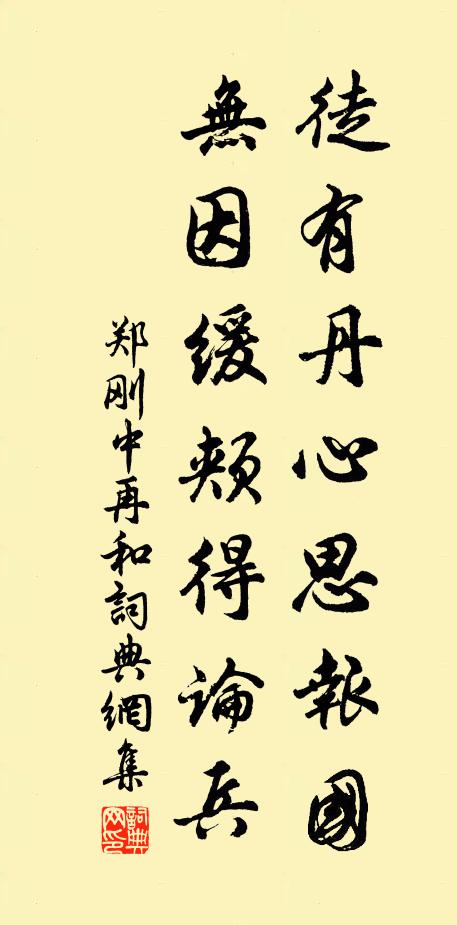 徒有丹心思報國
無因緩頰得論兵
郑刚中再和詞典網集
詞典網印